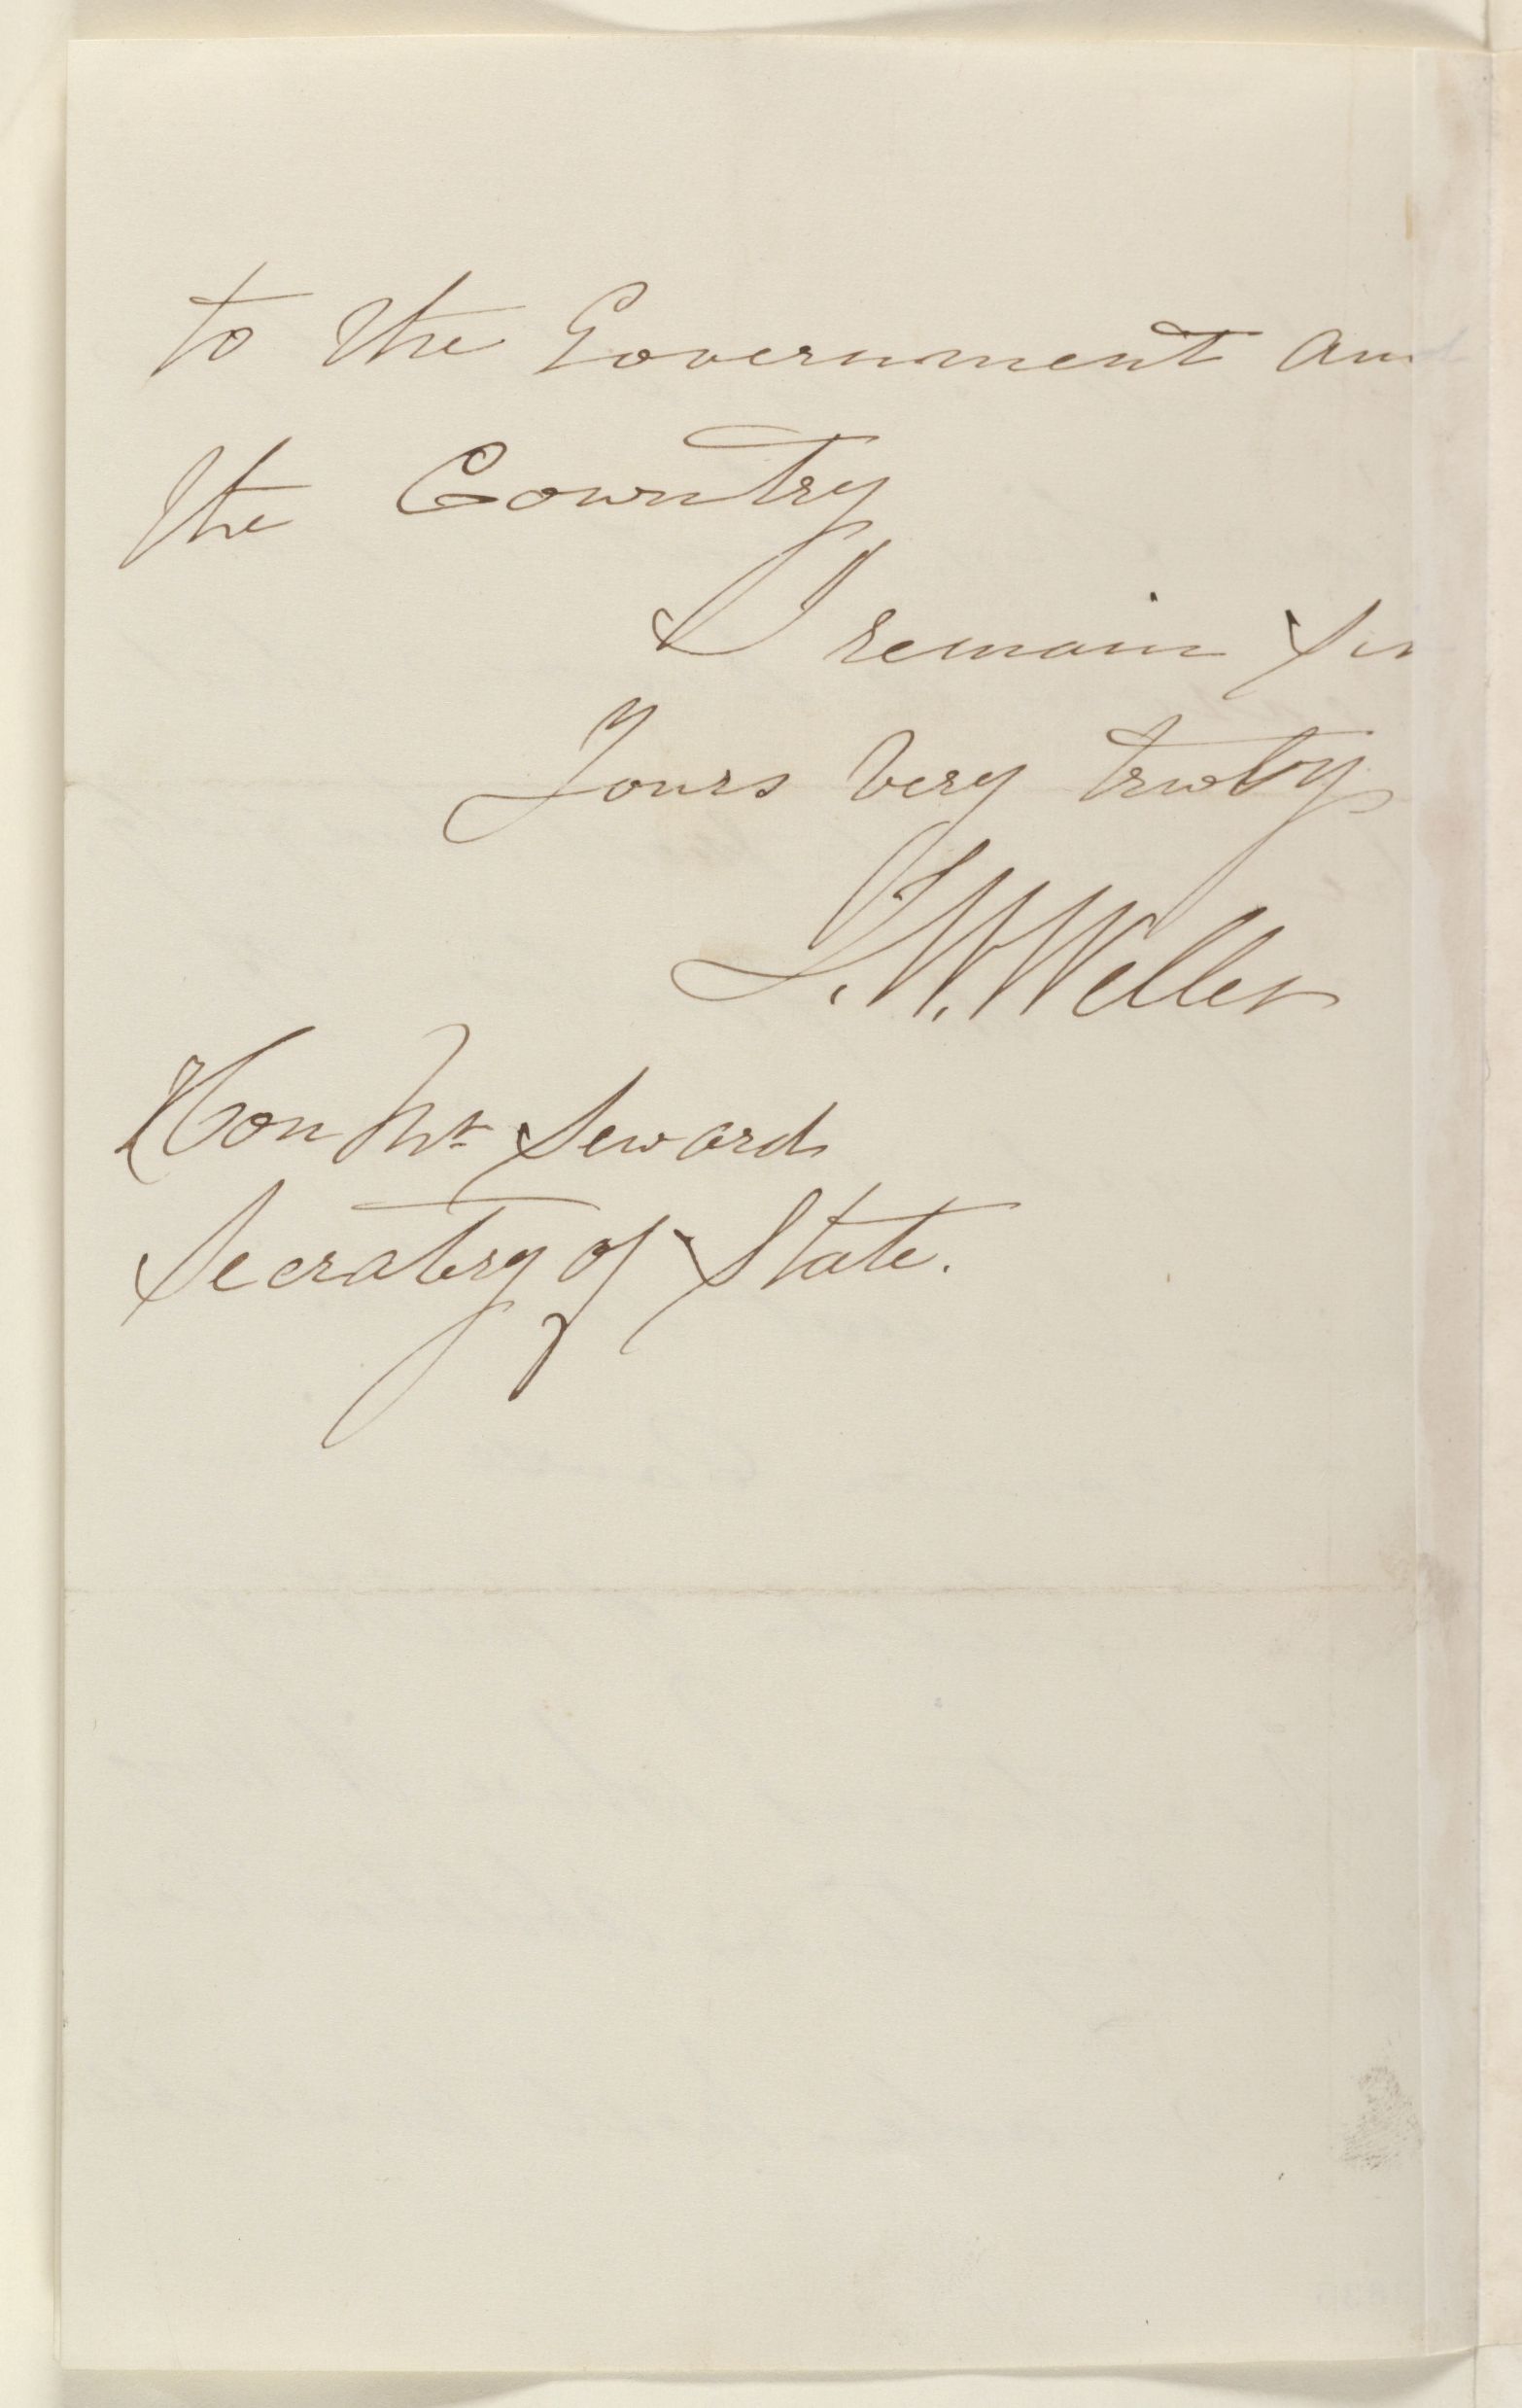 to the Government and
the Country
I remain Sir
Yours very truly
J. W. Weller
Hon Mr Seward
Secratery of State.